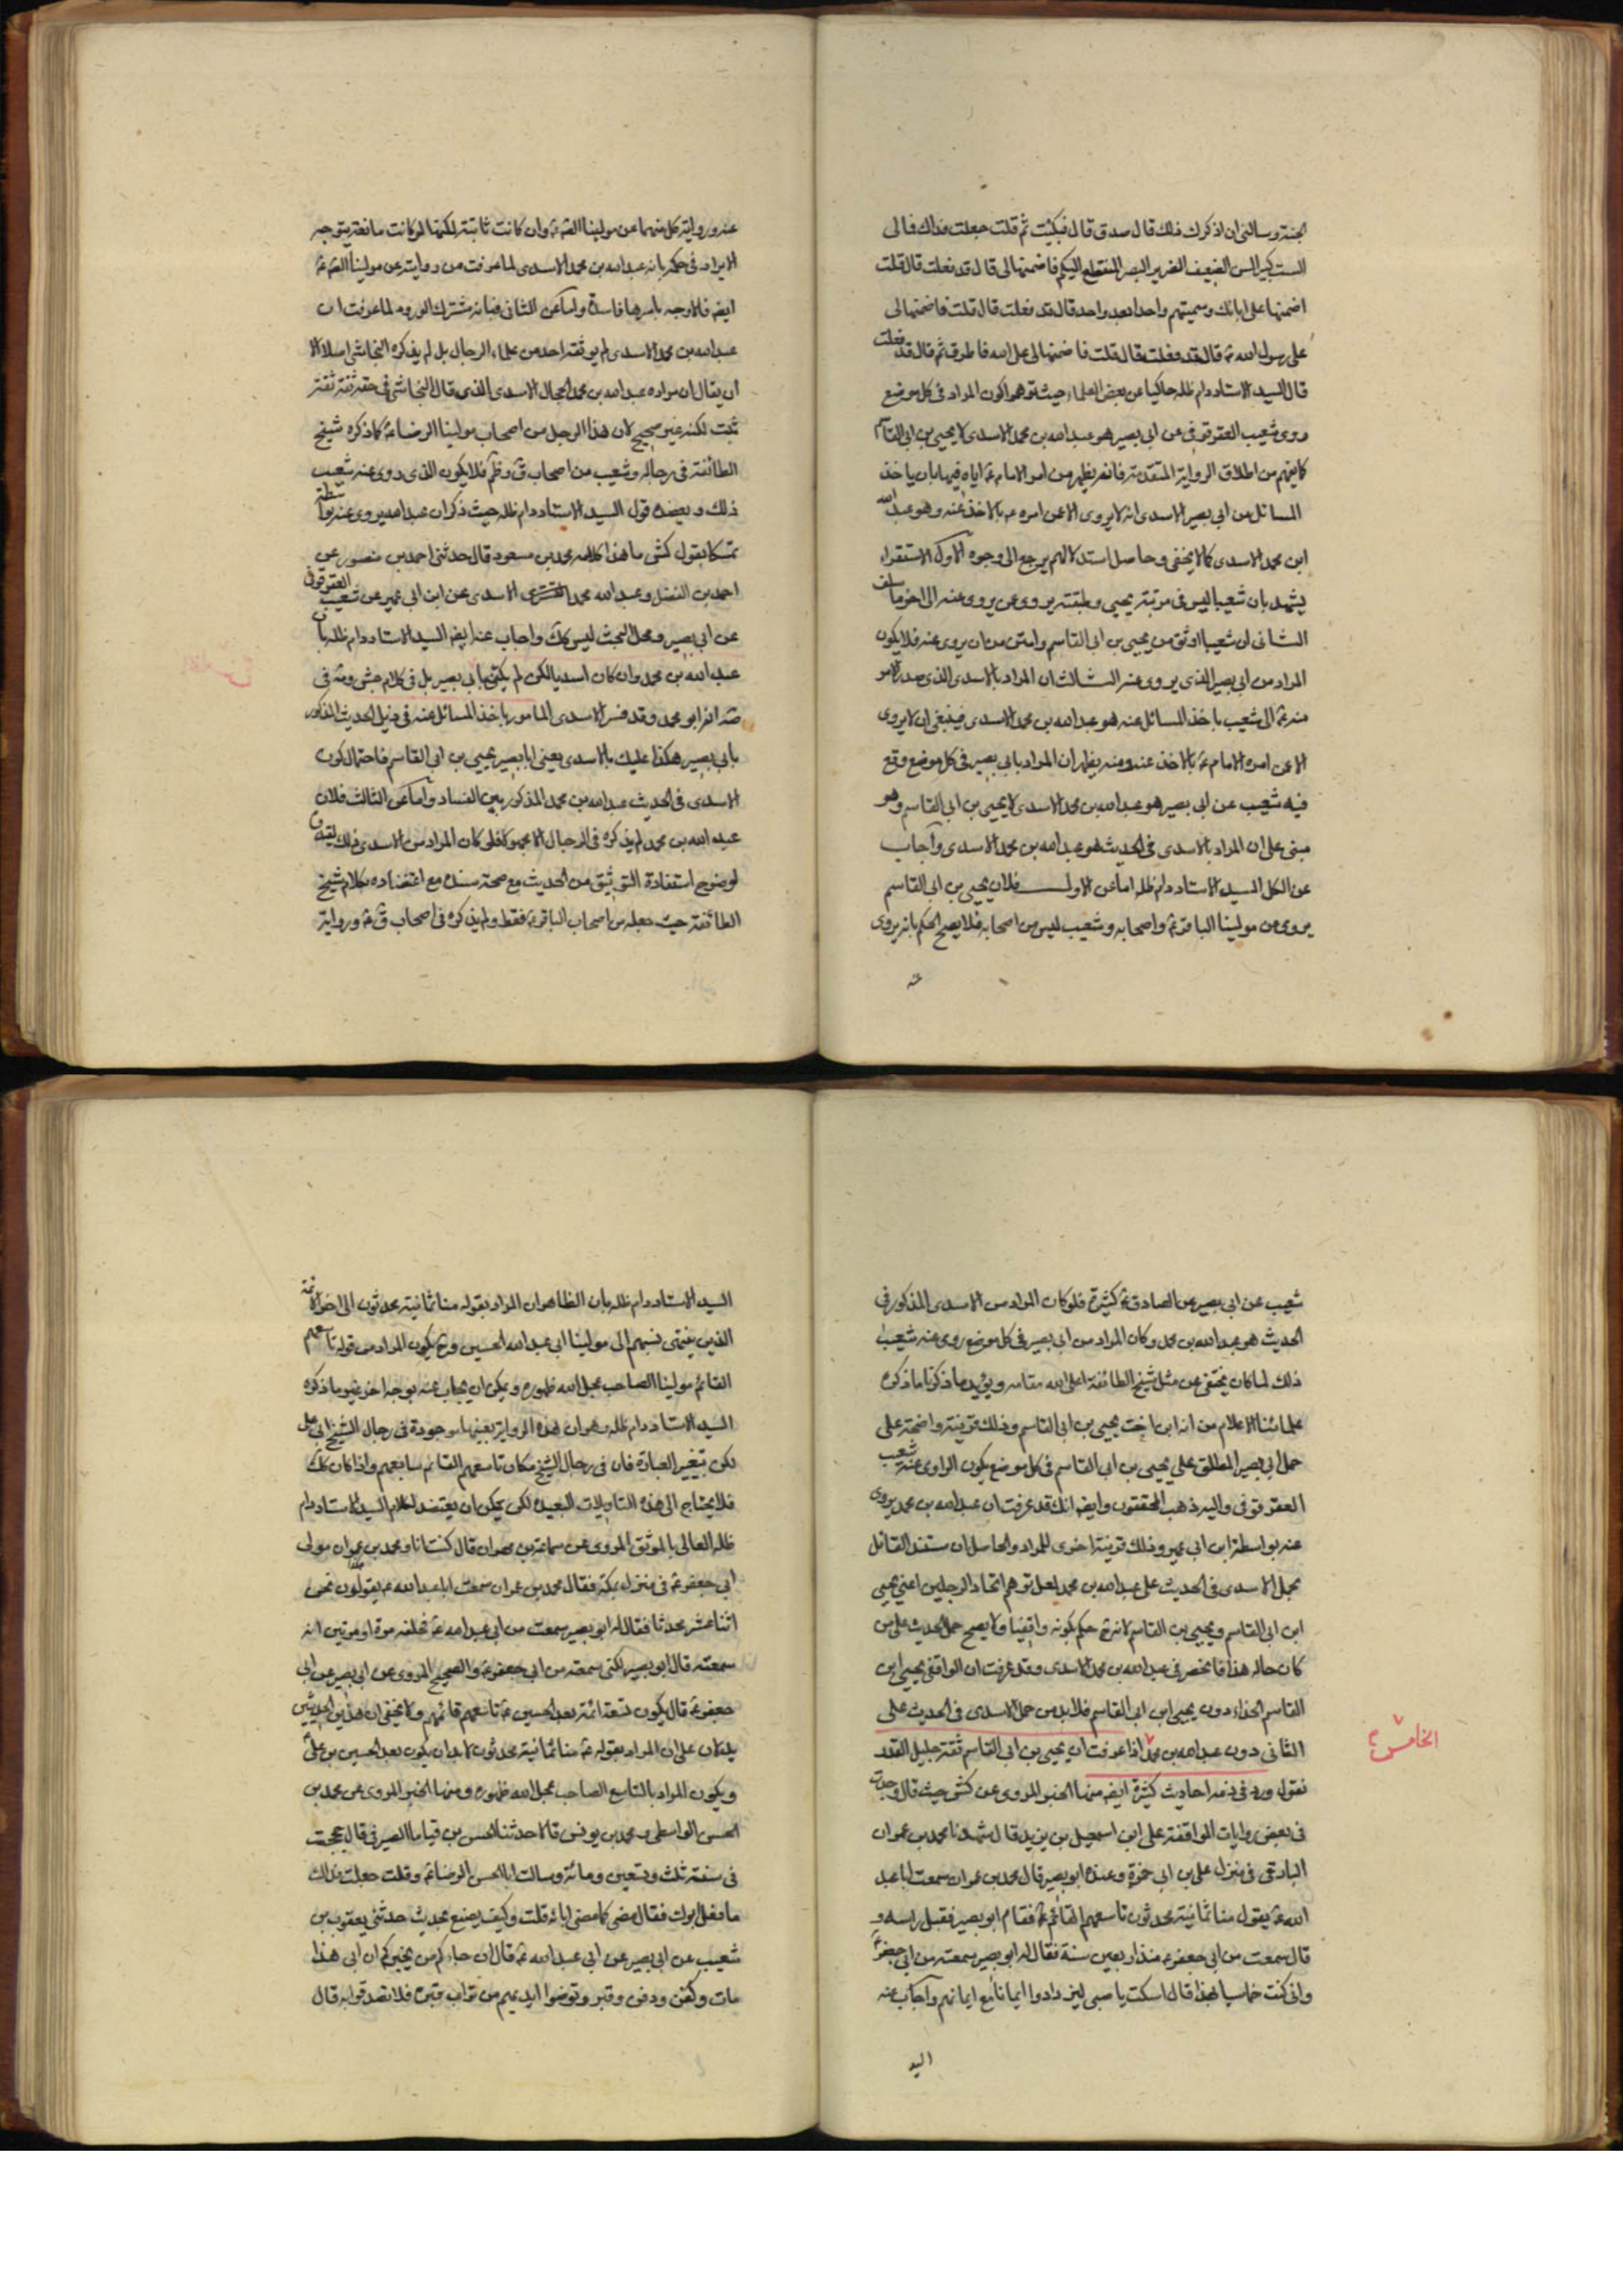 الجنة وسالنى ان اذكرك ذلك قال صدق قال فبكيت ثم قلت جعلت فداك فالى
الست كبير السن الضعيف الضرير البصر المنقطع اليكم فاضمنها لى قال قد فعلت قال قلت
اضمنها على ابائك وسميتهم واحدا بعد واحد قال قد فعلت قال قلت فاضمنها لى
على رسول الله ص قال قد فعلت قال قلت فاضمنها لى على الله فاطرق ثم قال قد فعلت
قال السيد الاستاد دام ظله حاكيا عن بعض العلماء حيث توهم كون المراد فى كل موضع
روى شعيب العقرقوفى عن ابى بصير هو عبد الله بن محمد الاسدى لا يحيى بن ابى القاسم
كما يفهم من اطلاق الرواية المتقدمة فانه يظهر من امر الامام ع اياه فيها بان ياخذ
المسائل من ابى بصير الاسدى انه لا يروى الا عن امره ع بالاخذ عنه وهو عبد الله
ابن محمد الاسدى كما لا يخفى وحاصل استدلالهم يرجع الى وجوه الاول الاستقراء
يشهد بان شعيبا ليس فى مرتبة يحيى وطبقته يروى عن يروى عنه الى اخر ما سلف
الثانى ان شعيبا اوثق من يحيى بن ابى القاسم وامتن من ان يروى عنه فلا يكون
المراد من ابى بصير الذى يروى عنه الثالث ان المراد بالاسدى الذى صدر الامر
منه ع الى شعيب باخذ المسائل عنه هو عبد الله بن محمد الاسدى فينبغى ان لا يروى
الا عن امره الامام ع بالاخذ عنه ومنه يظهر ان المراد بابى بصير فى كل موضع وقع
فيه شعيب عن ابى بصير هو عبد الله بن محمد الاسدى لا يحيى بن ابى القاسم وهو
مبنى على ان المراد بالاسدى فى الحديث هو عبد الله بن محمد الاسدى واجاب
عن الكل السيد الاستاد دام ظله اما عن الاول فلان يحيى بن ابى القاسم
يروى من مولينا الباقر ع واصحابه وشعيب ليس من اصحابه فلا يصح الحكم بانه يروى
عنه
عنه ورواية كل منهما عن مولينا الصادق ع وان كانت ثابتة لكنها لو كانت مانعة يتوجه
الايراد فى حكمه بانه عبد الله بن محمد الاسدى لما عرفت من روايته عن مولينا الصادق ع
ايضا فالاوجه باسرها فاسدة واما عن الثانى فبانه مشترك الورود لما عرفت ان
عبد الله بن محمد الاسدى لم يوثقه احد من علماء الرجال بل لم يذكره النجاشى اصلا الا
ان يقال ان مراده عبد الله بن محمد الحجال الاسدى الذى قال النجاشى فى حقه ثقة ثقة
ثبت لكنه غير صحيح لان هذا الرجل من اصحاب مولينا الرضا ع كما ذكره شيخ
الطائفة فى رجاله وشعيب من اصحاب ق وظم فلا يكون الذى روى عنه شعيب
ذلك ويعضده قول السيد الاستاد دام ظله حيث ذكر ان عبد الله يروى عنه بواسطة
تمسكا بقول كش ما هذا كلامه محمد بن مسعود قال حدثنى احمد بن منصور عن
احمد بن الفضل وعبد الله محمد الاسدى عن ابن ابى عمير عن شعيب العقرقوفى
عن ابى بصير ومحل البحث ليس كك واجاب عنه ايضا السيد الاستاد دام ظله بان
عبد الله بن محمد وان كان اسديا لكن لم يكن بابى بصير بل فى كلام جش ومنه فى
صه انه ابو محمد وقد فسر الاسدى المامور باخذ المسائل عنه فى ذيل الحديث المذكور
بابى بصير هكذا عليك بالاسدى يعنى ابا بصير يحيى بن ابى القاسم فاحتمال كون
الاسدى فى الحديث عبد الله بن محمد المذكور بين الفساد واما عن الثالث فلان
عبد الله بن محمد لم يذكره فى الرجال الا مجهولا فلو كان المراد من الاسدى ذلك
لوضوح استفادة التوثيق من الحديث مع صحة سنده مع اعتضاده بكلام شيخ
الطائفة حيث جعله من اصحاب الباقر ع فقط ولم يذكره فى اصحاب ق ع ورواية
شعيب عن ابى بصير عن الصادق ع كثيرة فلو كان المراد من الاسدى المذكور فى
الحديث هو عبد الله بن محمد وكان المراد من ابى بصير فى كل موضع روى عنه شعيب
ذلك لما كان يختفى عن مثل شيخ الطائفة اعلى الله مقامه ويؤيد ما ذكرنا ما ذكره
علمائنا الاعلام من انه ابن اخت يحيى بن ابى القاسم وذلك قرينة واضحة على
حمل ابى بصير المطلق على يحيى بن ابى القاسم فى كل موضع يكون الراوى عنه شعيب
العقرقوفى واليه ذهب المحققون وايضا انك قد عرفت ان عبد الله بن محمد يروى
عنه بواسطة ابن ابى عمير وذلك قرينة اخرى للمراد والحاصل ان مستند القائل
بحمل الاسدى فى الحديث على عبد الله بن محمد لعل توهم اتحاد الرجلين اعنى يحيى
ابن ابى القاسم ويحيى بن القاسم لانه ع حكم بكونه واقفيا ولا يصح حمل الحديث على من
كان حاله هذا فانحصر فى عبد الله بن محمد الاسدى وقد عرفت ان الواقفى يحيى ابن
القاسم الحذاء دون يحيى ابن ابى القاسم فلا بد من حمل الاسدى فى الحديث على
الثانى دون عبد الله بن محمد اذا عرفت ان يحيى بن ابى القاسم ثقة جليل القدر
الخامس
نقول ورد فى ذمه احاديث كثيرة ايضا منها الخبر المروى عن كش حيث قال وجدت
فى بعض روايات الواقفة على ابن اسمعيل بن يزيد قال شهدنا محمد بن عمران
البارقى فى منزل على بن ابى حمزة وعنده ابو بصير قال محمد بن عمران سمعت ابا عبد
الله ع يقول منا ثمانية محدثون تاسعهم القائم ع فقام ابو بصير فقبل راسه و
قال سمعت من ابى جعفر ع منذ اربعين سنة فقال له ابو بصير سمعته من ابى جعفر ع
وانى كنت خماسيا بهذا قال اسكت يا صبى ليزدادوا ايمانا مع ايمانهم واجاب عنه
السيد
السيد الاستاد دام ظله بان الظاهر ان المراد بقوله منا ثمانية محدثون الى اخره الائمة
الذين ينتهى نسبهم الى مولينا ابى عبد الله الحسين وح يكون المراد من قوله تاسعهم
القائم مولينا الصاحب عجل الله ظهوره ويمكن ان يجاب عنه بوجه اخر غير ما ذكره
السيد الاستاد دام ظله وهو ان هذه الرواية بعينها موجودة فى رجال الشيخ ابى على
لكن بتغيير العبارة فان فى رجال الشيخ مكان تاسعهم القائم سابعهم واذا كان كك
فلا يحتاج الى هذه التاويلات البعيدة لكن يمكن ان يعتضد لكلام السيد الاستاد دام
ظله العالى بالموثق المروى عن سماعة بن مهران قال كنت انا ومحمد بن عمران مولى
ابى جعفر ع فى منزل بمكة فقال محمد بن عمران سمعت ابا عبد الله ع يقول نحن
اثنا عشر محدثا فقال له ابو بصير سمعت من ابى عبد الله ع فحلفه مرة او مرتين انه
سمعته قال ابو بصير لكنى سمعته من ابى جعفر ع والصحيح المروى عن ابى بصير عن ابى
جعفر ع قال يكون تسعة ائمة بعد الحسين ع تاسعهم قائمهم ولا يخفى ان هذين الحديثين
يدلان على ان المراد بقوله ع منا ثمانية محدثون لا بد ان يكون بعد الحسين بن على
ويكون المراد بالتاسع الصاحب عجل الله ظهوره ومنها الخبر المروى عن محمد بن
الحسن الواسطى ومحمد بن يونس قالا حدثنا الحسن بن قياما الصيرفى قال حججت
فى سنة ثلث وتسعين ومائة وسالت ابا الحسن الرضا ع وقلت جعلت فداك
ما فعل ابوك فقال مضى كما مضى ابائه قلت وكيف يصنع بحديث حدثنى يعقوب بن
شعيب عن ابى بصير عن ابى عبد الله ع قال ان جاءكم من يخبركم ان ابى هذا
مات وكفن ودفن وقبر ونفضوا ايديهم من تراب قبره فلا تصدقوا به قال